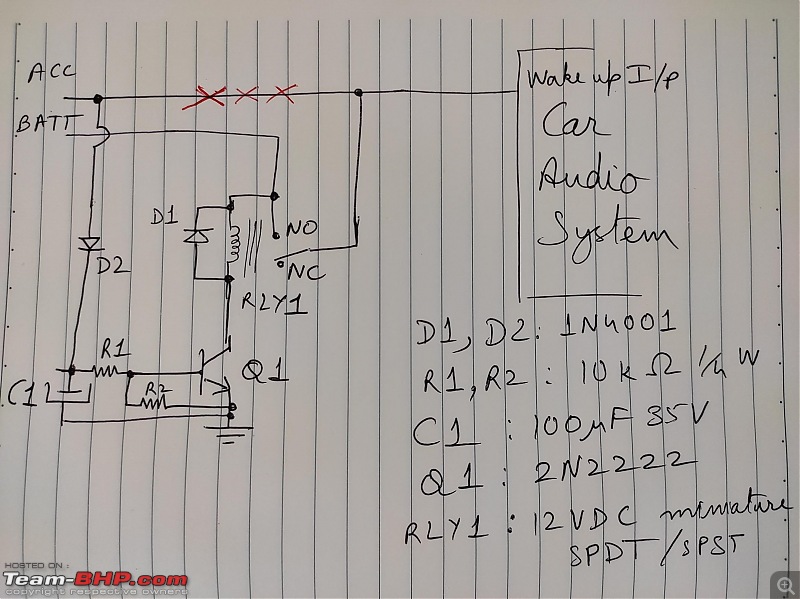 ACC
BATT
Wake up I/p
Car
Audio
System
D1
NO
NC
D2
RLY1
R1
R2
Q1
C1
D1, D2: 1N4001
R1, R2 : 10k Ω 1/4 W
C1 : 100μF 35V
Q1 : 2N2222
RLY1 : 12VDC miniature
SPDT/SPST
HOSTED ON :
Team-BHP.com
copyright respective owners